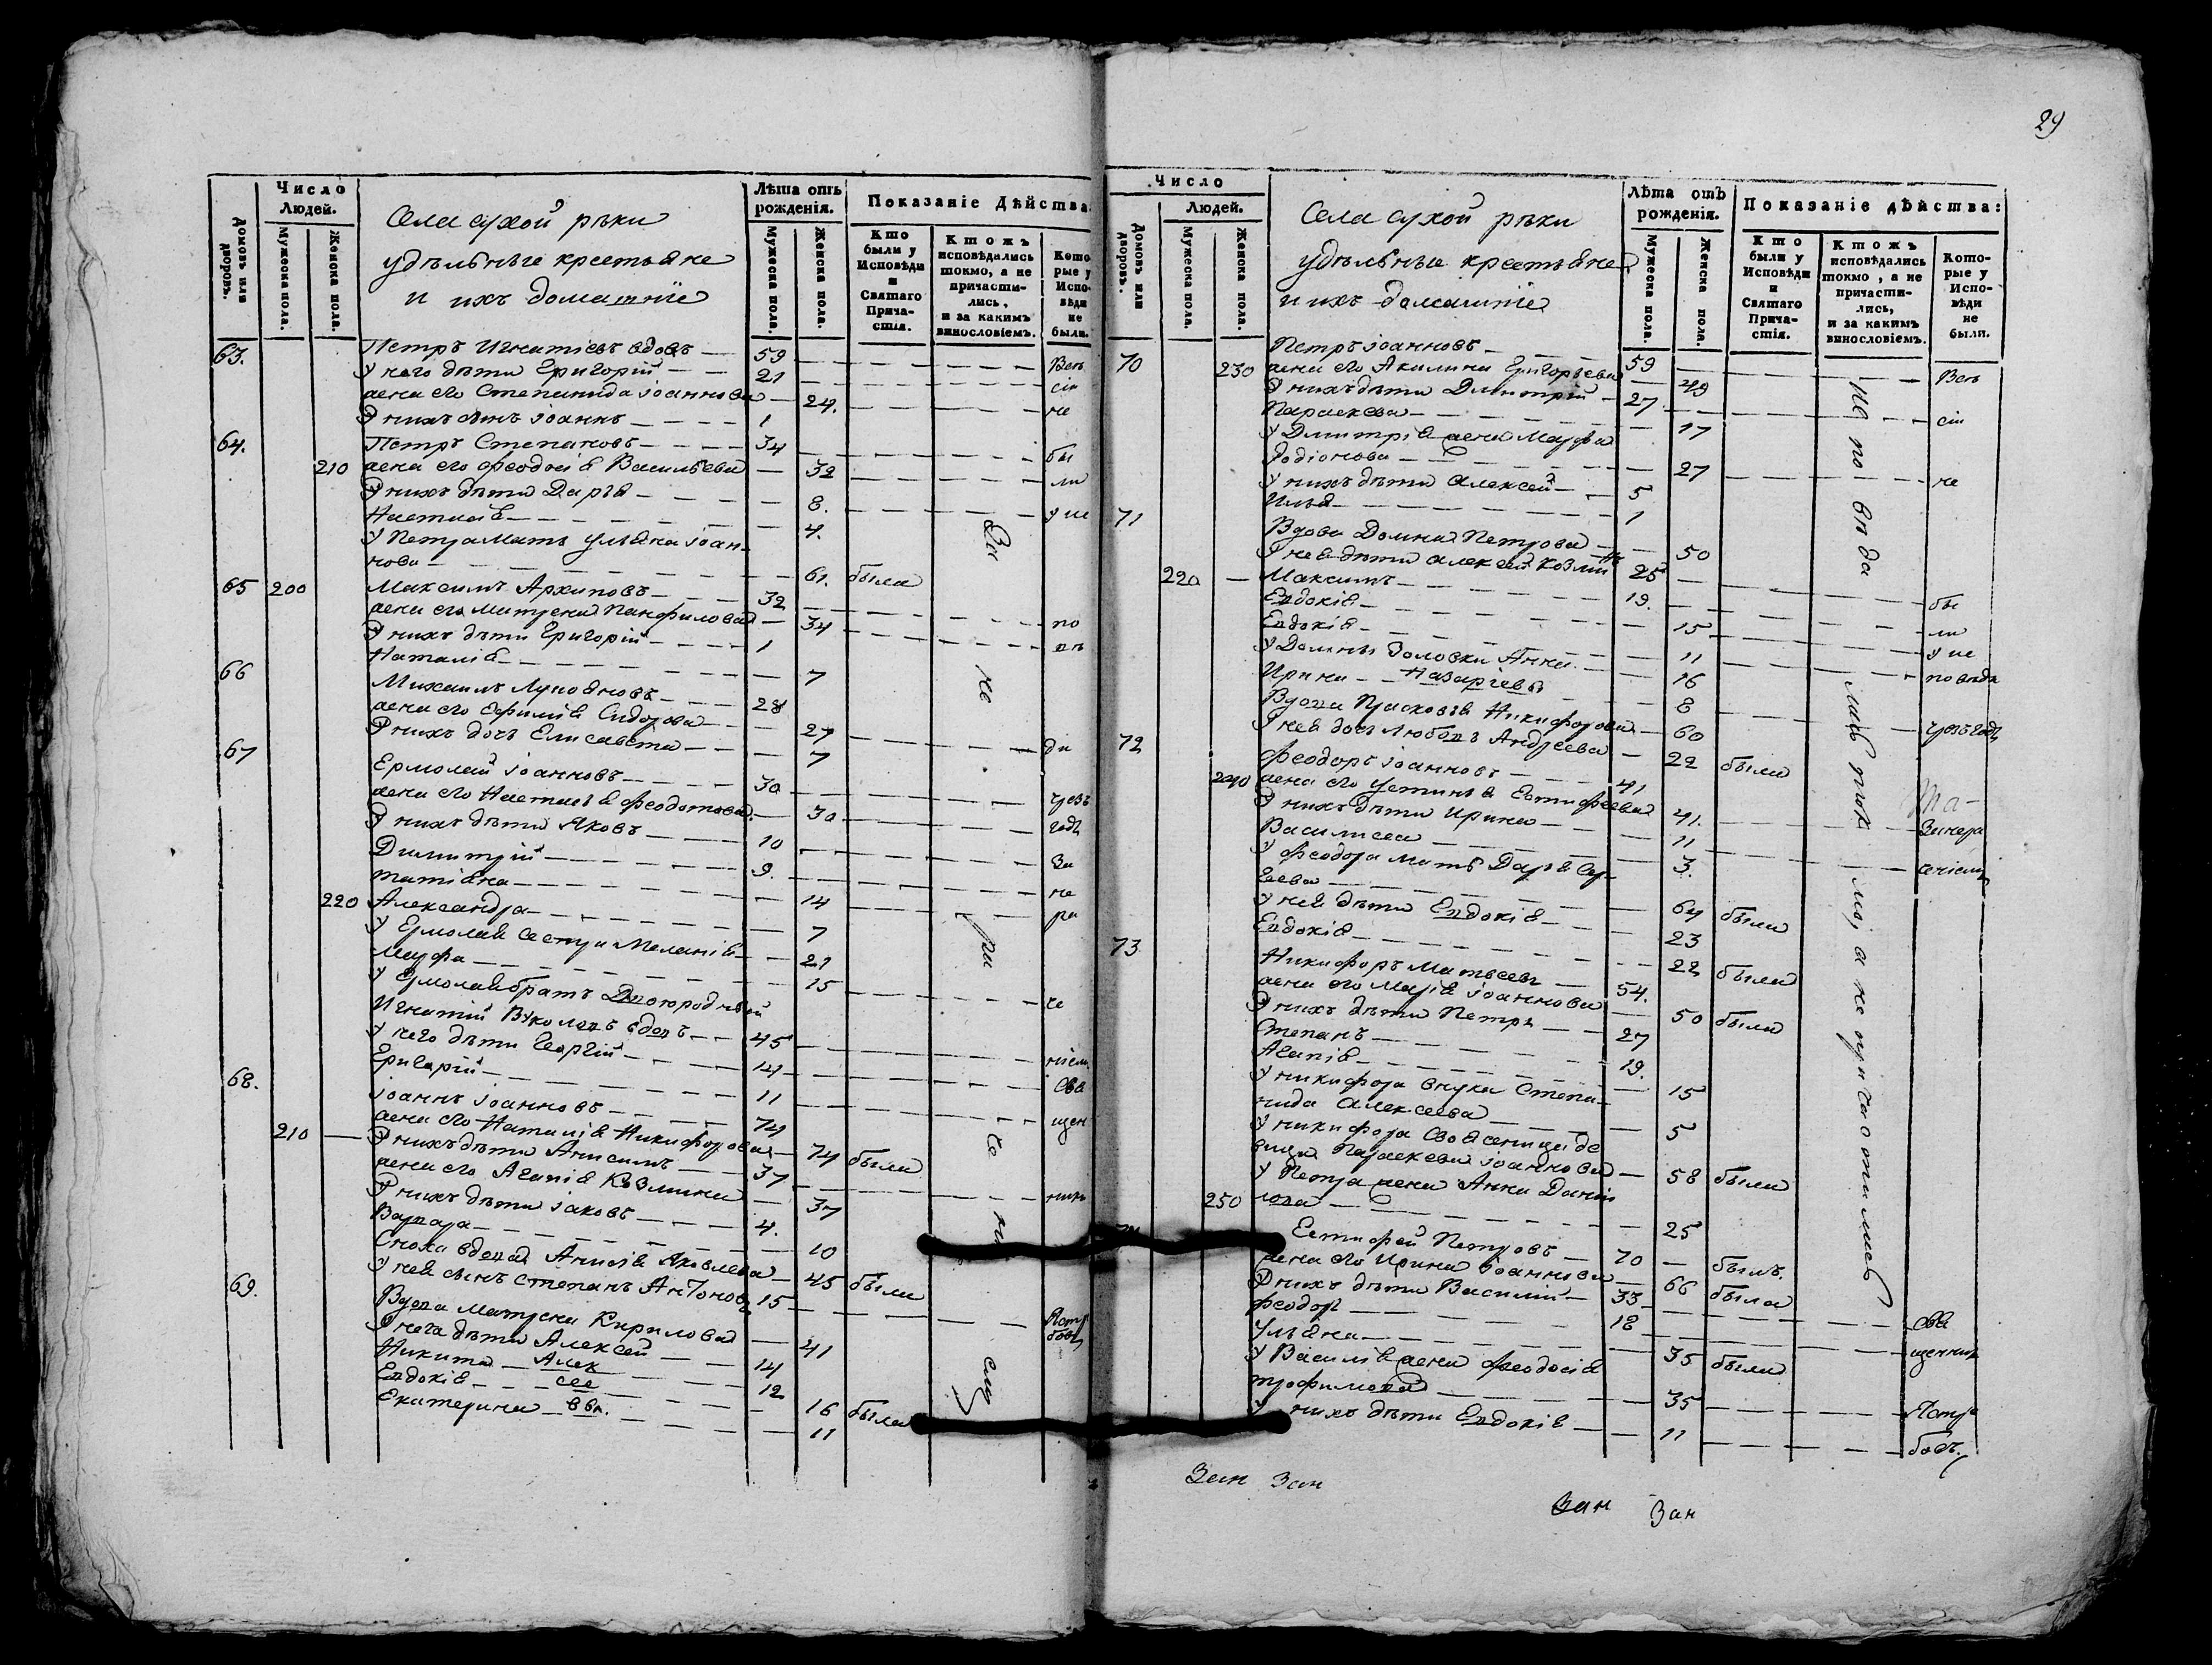 29
Число
Людей.
Домовъ или дворовъ.
Мужеска пола.
Женска пола.
Села сухой рѣки
удѣльныe крестьяне
и ихъ домашніе
Лѣта отъ рожденія.
Мужеска пола.
Женска пола.
Показаніе Дѣйства
Кто были у Исповѣди и Святаго Причастія.
Ктожъ исповѣдались токмо, а не причастились, и за какимъ винословіемъ.
Которые у Исповѣди не были.
63. Петръ Игнатіевъ вдовъ 59 Всѣ
У него дѣти Григорій 21 сіи
жена его Степанида Іоаннова 24. не
У нихъ сынъ Іоаннъ 1
64. Петръ Степановъ 34 бы
210 жена его Феодосія Васильева 32 ли
У нихъ дѣти Дарья 8. у ис
Настасія 4.
У Петра мать Ульяна Іоан-
нова 61. была
65 200 Максимъ Архиповъ 32
жена его Матрена Панфилова 34 по
У нихъ дѣти Григорій 1 вѣ
Наталія 7
66 Михаилъ Лупояновъ 28
жена его Ефимія Сидорова 27
У нихъ дочь Елисавета 7 ди
67 Ермолай Іоанновъ 30
жена его Настасья Феодотова 30 чрезъ
У нихъ дѣти Яковъ 10 годъ
Димитрій 9. За
Татіяна 14 не
220 Александра 7 ра
У Ермолая сестра Меланія 21
Марфа 15
У Ермолая братъ Двоюродный че
Игнатій Вуколовъ вдовъ 45
У него дѣти Георгій 14 ніемъ
Григорій 11 Свя
68. Іоаннъ Іоанновъ 74 щен
жена его Наталія Никифорова 74 была
210 У нихъ дѣти Анисимъ 37
жена его Агапія Козмина 37 никъ
У нихъ дѣти Іаковъ 4.
Варвара 10
Сноха вдова Анисія Яковлева 45 была
У ней сынъ Степанъ Антоновъ 15
69. Вдова Матрена Кирилова 41
У нега дѣти Алексей 14
Никита Алек 12
Евдокія сее 16 была
Екатерина ввы. 11
Число
Людей.
Домовъ или дворовъ.
Мужеска пола.
Женска пола.
Села сухой рѣки
удѣльныe крестьяне
и ихъ домашніе
Лѣта отъ рожденія.
Мужеска пола.
Женска пола.
Показаніе дѣйства:
Кто были у Исповѣди и Святаго Причастія.
Ктожъ исповѣдались токмо, а не причастились, и за какимъ винословіемъ.
Которые у Исповѣди не были.
70 Петръ Іоанновъ 59
230 жена его Акилина Григорьева 49 Всѣ
У нихъ дѣти Димитрій 27
Параскева 17 сіи
У Дмитрія жена Марфа
Родіонова 27
У нихъ дѣти Алексей 5 не
Илья 1
71 Вдова Домна Петрова 50
У нея дѣти Алексей Козминъ 25
220 Максимъ 19. бы
Евдокія 15 ли
Евдокія 11 у ис
У Домны золовки Анна 16 повѣди
Ирина Назаріевы 8
Вдова Прасковья Никифорова 60 чрезъ годъ
У нея дочь Любовь Андреева 22 была
72 Феодоръ Іоанновъ 41
240 жена его Устинья Евтифеева 41.
У нихъ дѣти Ирина 11
Василиса 3.
У Феодора мать Дарья Сер-
геева 64 была
У ней дѣти Евдокія 23
Евдокія 22 была
73 Никифоръ Матвеевъ 54.
жена его Марія Іоаннова 50 была
У нихъ дѣти Петръ 27
Степанъ 19.
Агапія 15
У Никифора внука Степа-
нида Алексеева 5
У Никифора Свояченица де
вица Параскева Іоаннова 58 была
У Петра жена Анна Дани
250 лова 25
Евтифей Петровъ 70 былъ.
жена его Ирина Іоаннова 66 была
У нихъ дѣти Василій 33
Феодоръ 18 Свя
Ульяна 35 была щенникъ
У Василія жена Феодосія
Трофимова 35
У нихъ дѣти Евдокія 11
не по вѣ да лись ток мо, а не причастились
Зан Зан
Зан Зан